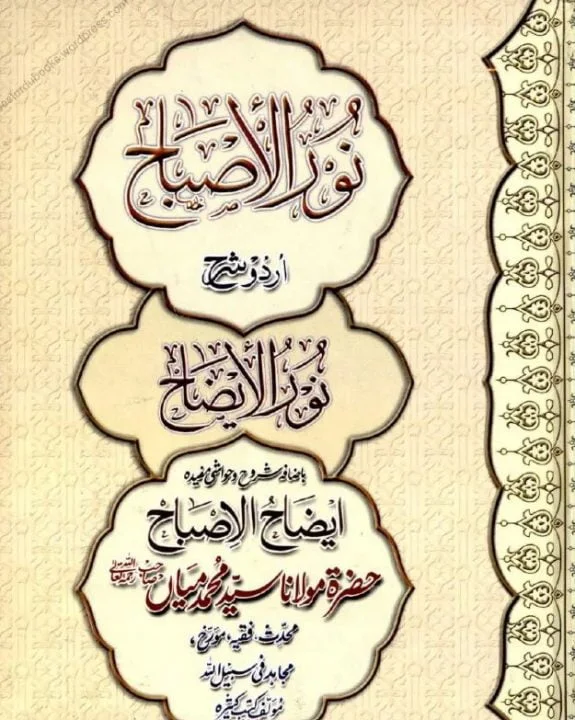 نُورُ الْأَصْبَاح
اردو شرح
نُورُ الْأَيْضَاح
باضافہ شروح وحواشی مفیدہ
ایضاحُ الاِصْبَاح
حضرۃ مولانا سیّد محمد میاں صاحب رحمہ اللہ تعالٰی
محدث، فقیہ، مورّخ،
مجاہد فی سبیل اللہ
مؤلف کتب کثیرہ